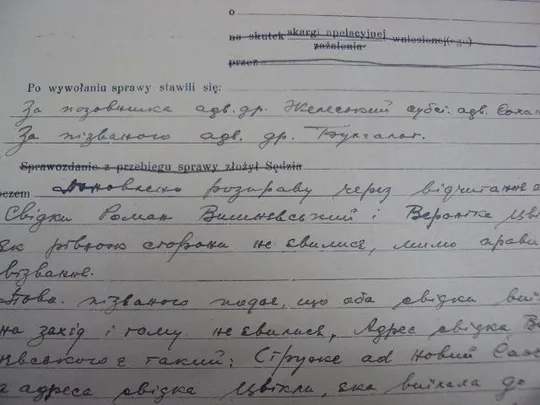 o
na skutek skargi apelacyjnej wniesionej(ego)
zażalenia
przez
Po wywołaniu sprawy stawili się:
За позовника адв. др. Желеський субст. адв.
За пізваного адв. др.
Sprawozdanie z przebiegu sprawy złożył Sędzia
poczem розправу через відчитання
Свідки Роман Вишневський і Вероніка
як рівнож сторони не явилися, мимо
візвання.
пізваного подає, що оба свідки
на захід і тому не явилися, Адрес свідка
є такий: Струже ad Новий
а адреса свідка Цвікли, яка виїхала до